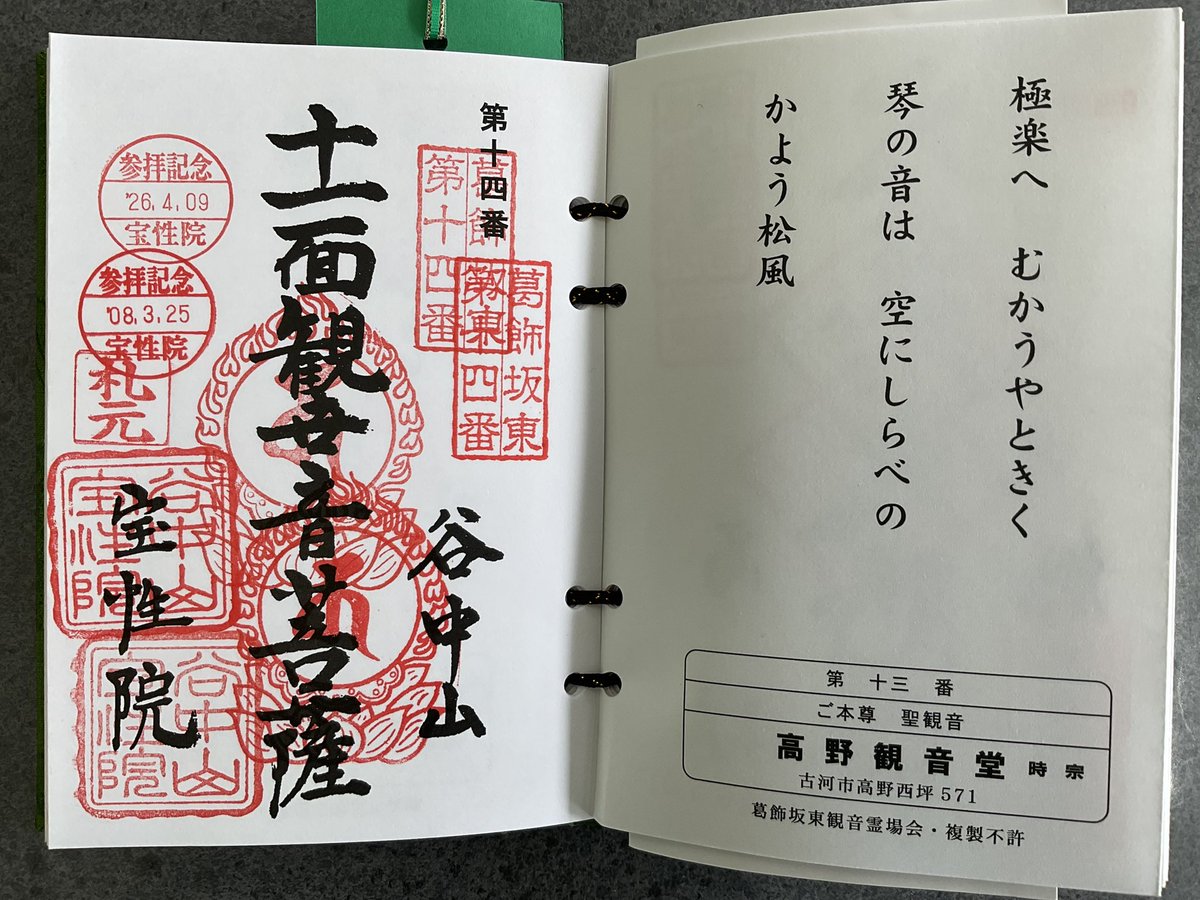 極楽へ むかうやときく
琴の音は 空にしらべの
かよう松風
第 十三 番
ご本尊 聖観音
高野観音堂 時宗
古河市高野西坪571
葛飾坂東観音霊場会・複製不許
第十四番
葛飾坂東
第十四番
葛飾坂東
第十四番
谷中山
十一面観世音菩薩
宝性院
参拝記念
'26.4.09
宝性院
参拝記念
'08.3.25
宝性院
札元
谷中山
宝性院
谷中山
宝性院